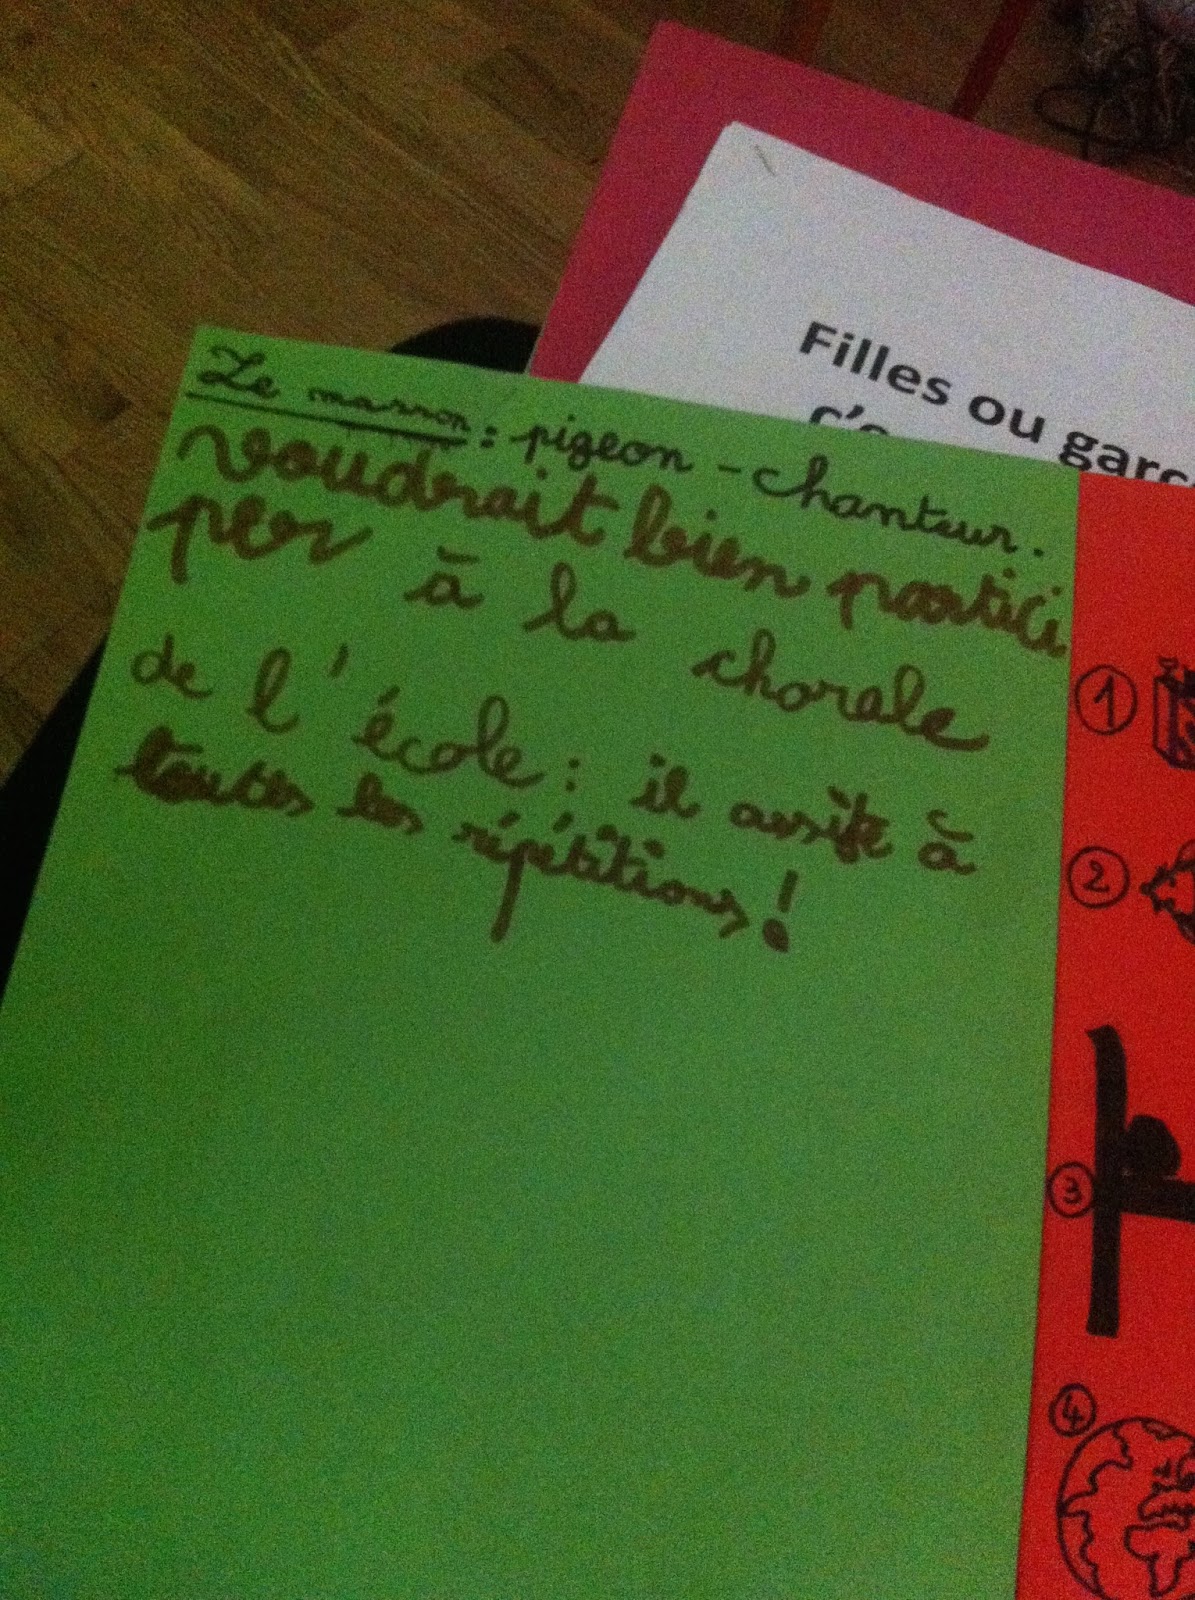 Filles ou garç
c'e
Le marron : pigeon - chanteur.
voudrait bien partici
per à la chorale
de l'école : il assiste à
toutes les répétitions !
1
2
3
4